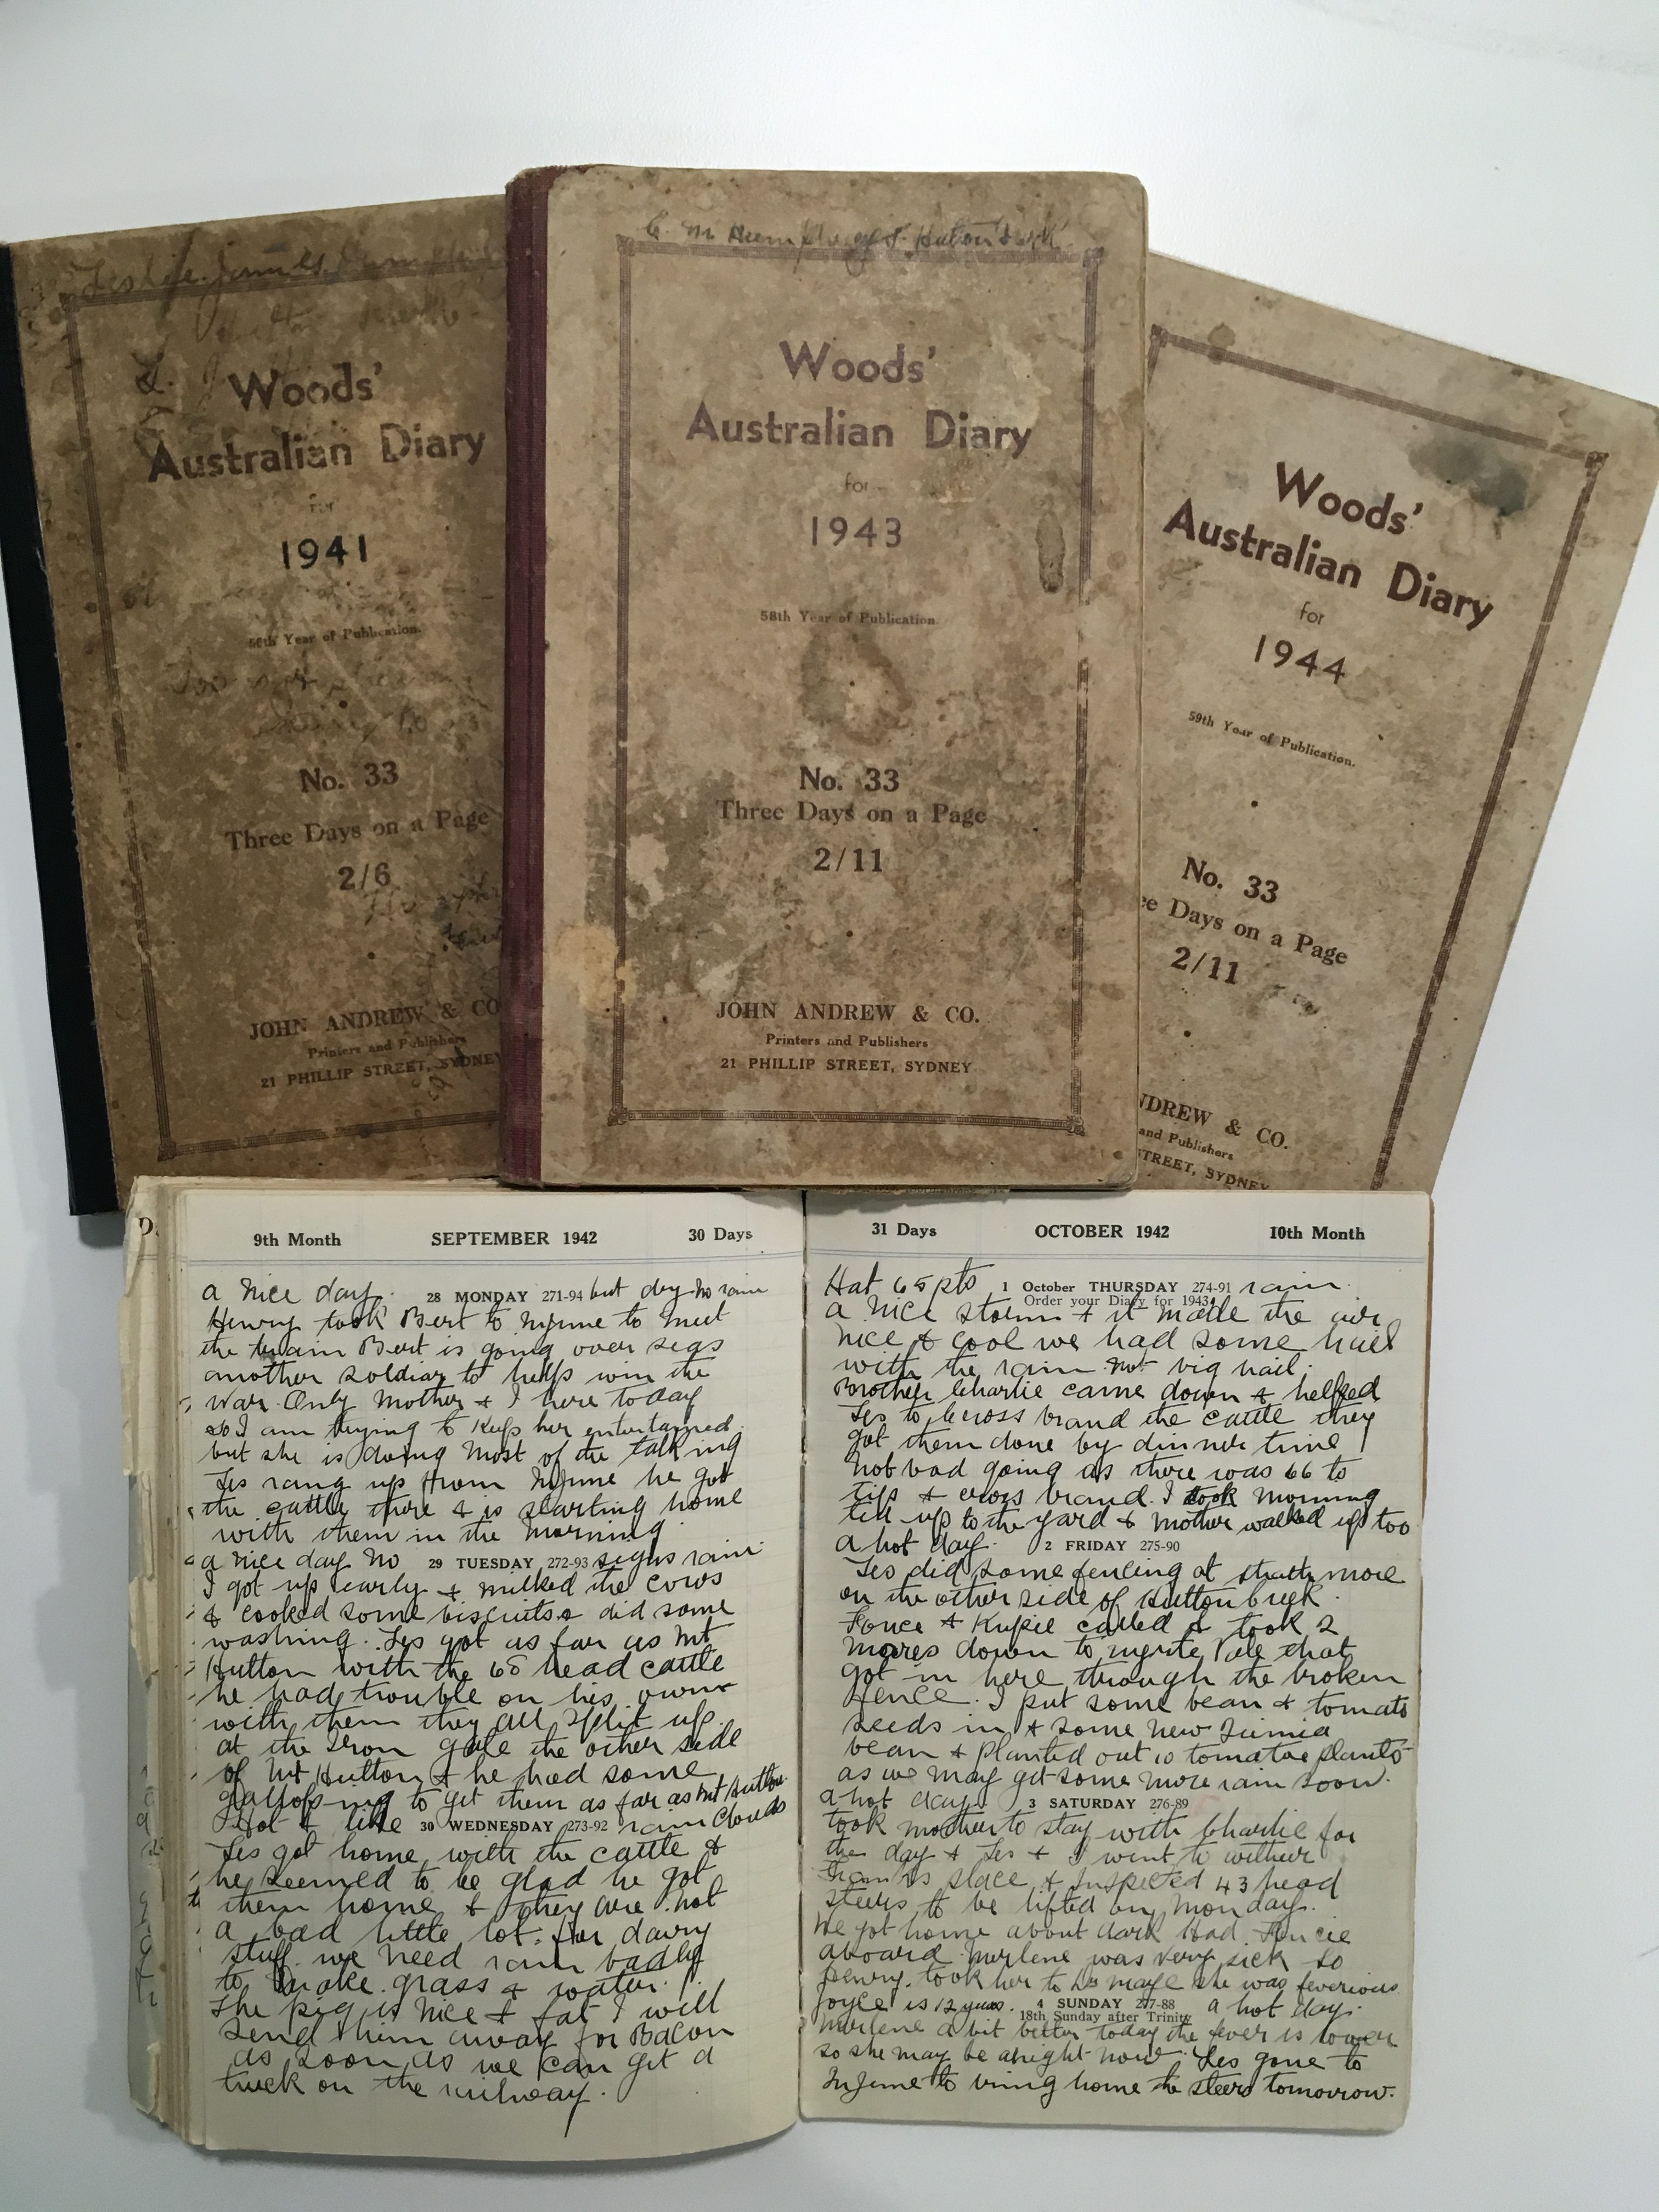 Leslie James
Woods'
Australian Diary
for
1941
56th Year of Publication.
No. 33
Three Days on a Page
2/6
JOHN ANDREW & CO
Printers and Publishers
21 PHILLIP STREET, SYDNEY
C. M. Humphreys. Hutton Creek
Woods'
Australian Diary
for
1943
58th Year of Publication
No. 33
Three Days on a Page
2/11
JOHN ANDREW & CO.
Printers and Publishers
21 PHILLIP STREET, SYDNEY
Woods'
Australian Diary
for
1944
59th Year of Publication.
No. 33
ee Days on a Page
2/11
NDREW & CO.
and Publishers
TREET, SYDNEY
9th Month SEPTEMBER 1942 30 Days
a nice day. 28 MONDAY 271-94 but dry no rain
Henry took Bert to Injune to meet
the train Bert is going over seas
another soldiar to help win the
War. Only Mother & I here today
so I am trying to keep her entertained
but she is doing most of the talking
Les rang up from Injune he got
the cattle there & is starting home
with them in the morning.
a nice day no 29 TUESDAY 272-93 signs rain
I got up early & milked the cows
& cooked some biscuits & did some
washing. Les got as far as Mt
Hutton with the 68 head cattle
he had trouble on his own
with them they all split up
at the Iron gate the other side
of Mt Hutton & he had some
galloping to get them as far as Mt Hutton
Hot & like 30 WEDNESDAY 273-92 rain clouds
Les got home with the cattle &
he seemed to be glad he got
them home & they are not
a bad little lot. for dairy
stuff. we need rain badly
to make grass & water.
The pig is nice & fat I will
send them away for Bacon
as soon as we can get a
truck on the railway.
31 Days OCTOBER 1942 10th Month
Hat 65 pts 1 October THURSDAY 274-91 rain.
Order your Diary for 1943
a nice storm & it made the air
nice & cool we had some hail
with the rain not big hail.
Brother Charlie came down & helped
Les to cross brand the cattle they
got them done by dinner time
not bad going as there was 66 to
tip & cross brand. I took morning
tea up to the yard & Mother walked up too
a hot day. 2 FRIDAY 275-90
Les did some fencing at strathmore
on the other side of Hutton Creek.
& called & took 2
mares down to Myrtle Vale that
got in here through the broken
fence. I put some bean & tomato
seeds in & some new
bean & planted out 10 tomatoe plants
as we may get some more rain soon.
a hot day 3 SATURDAY 276-89
took mother to stay with Charlie for
the day & Les & I went to
place & Inspected 43 head
steers to be lifted on Monday.
We got home about dark had
aboard. Merlene was very sick so
Henry took her to she was feverious
Joyce is 12 years. 4 SUNDAY 277-88 a hot day.
18th Sunday after Trinity
Merlene a bit better today the fever is lower
so she may be alright now. Les gone to
Injune to bring home the steers tomorrow.